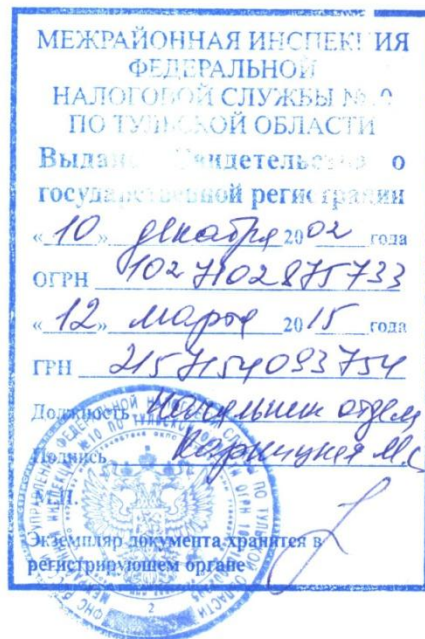 МЕЖРАЙОННАЯ ИНСПЕКЦИЯ
ФЕДЕРАЛЬНОЙ
НАЛОГОВОЙ СЛУЖБЫ
ПО ТУЛЬСКОЙ ОБЛАСТИ
Выдано Свидетельство о
государственной регистрации
«10» декабря 2002 года
ОГРН 1027102875733
«12» марта 2015 года
ГРН 2157154093754
Должность Начальник отдела
Подпись
М.П.
Экземпляр документа хранится в
регистрирующем органе